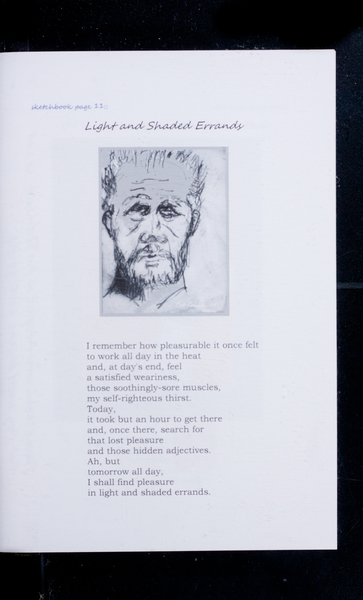 sketchbook page 11:
Light and Shaded Errands
I remember how pleasurable it once felt
to work all day in the heat
and, at day's end, feel
a satisfied weariness,
those soothingly-sore muscles,
my self-righteous thirst.
Today,
it took but an hour to get there
and, once there, search for
that lost pleasure
and those hidden adjectives.
Ah, but
tomorrow all day,
I shall find pleasure
in light and shaded errands.